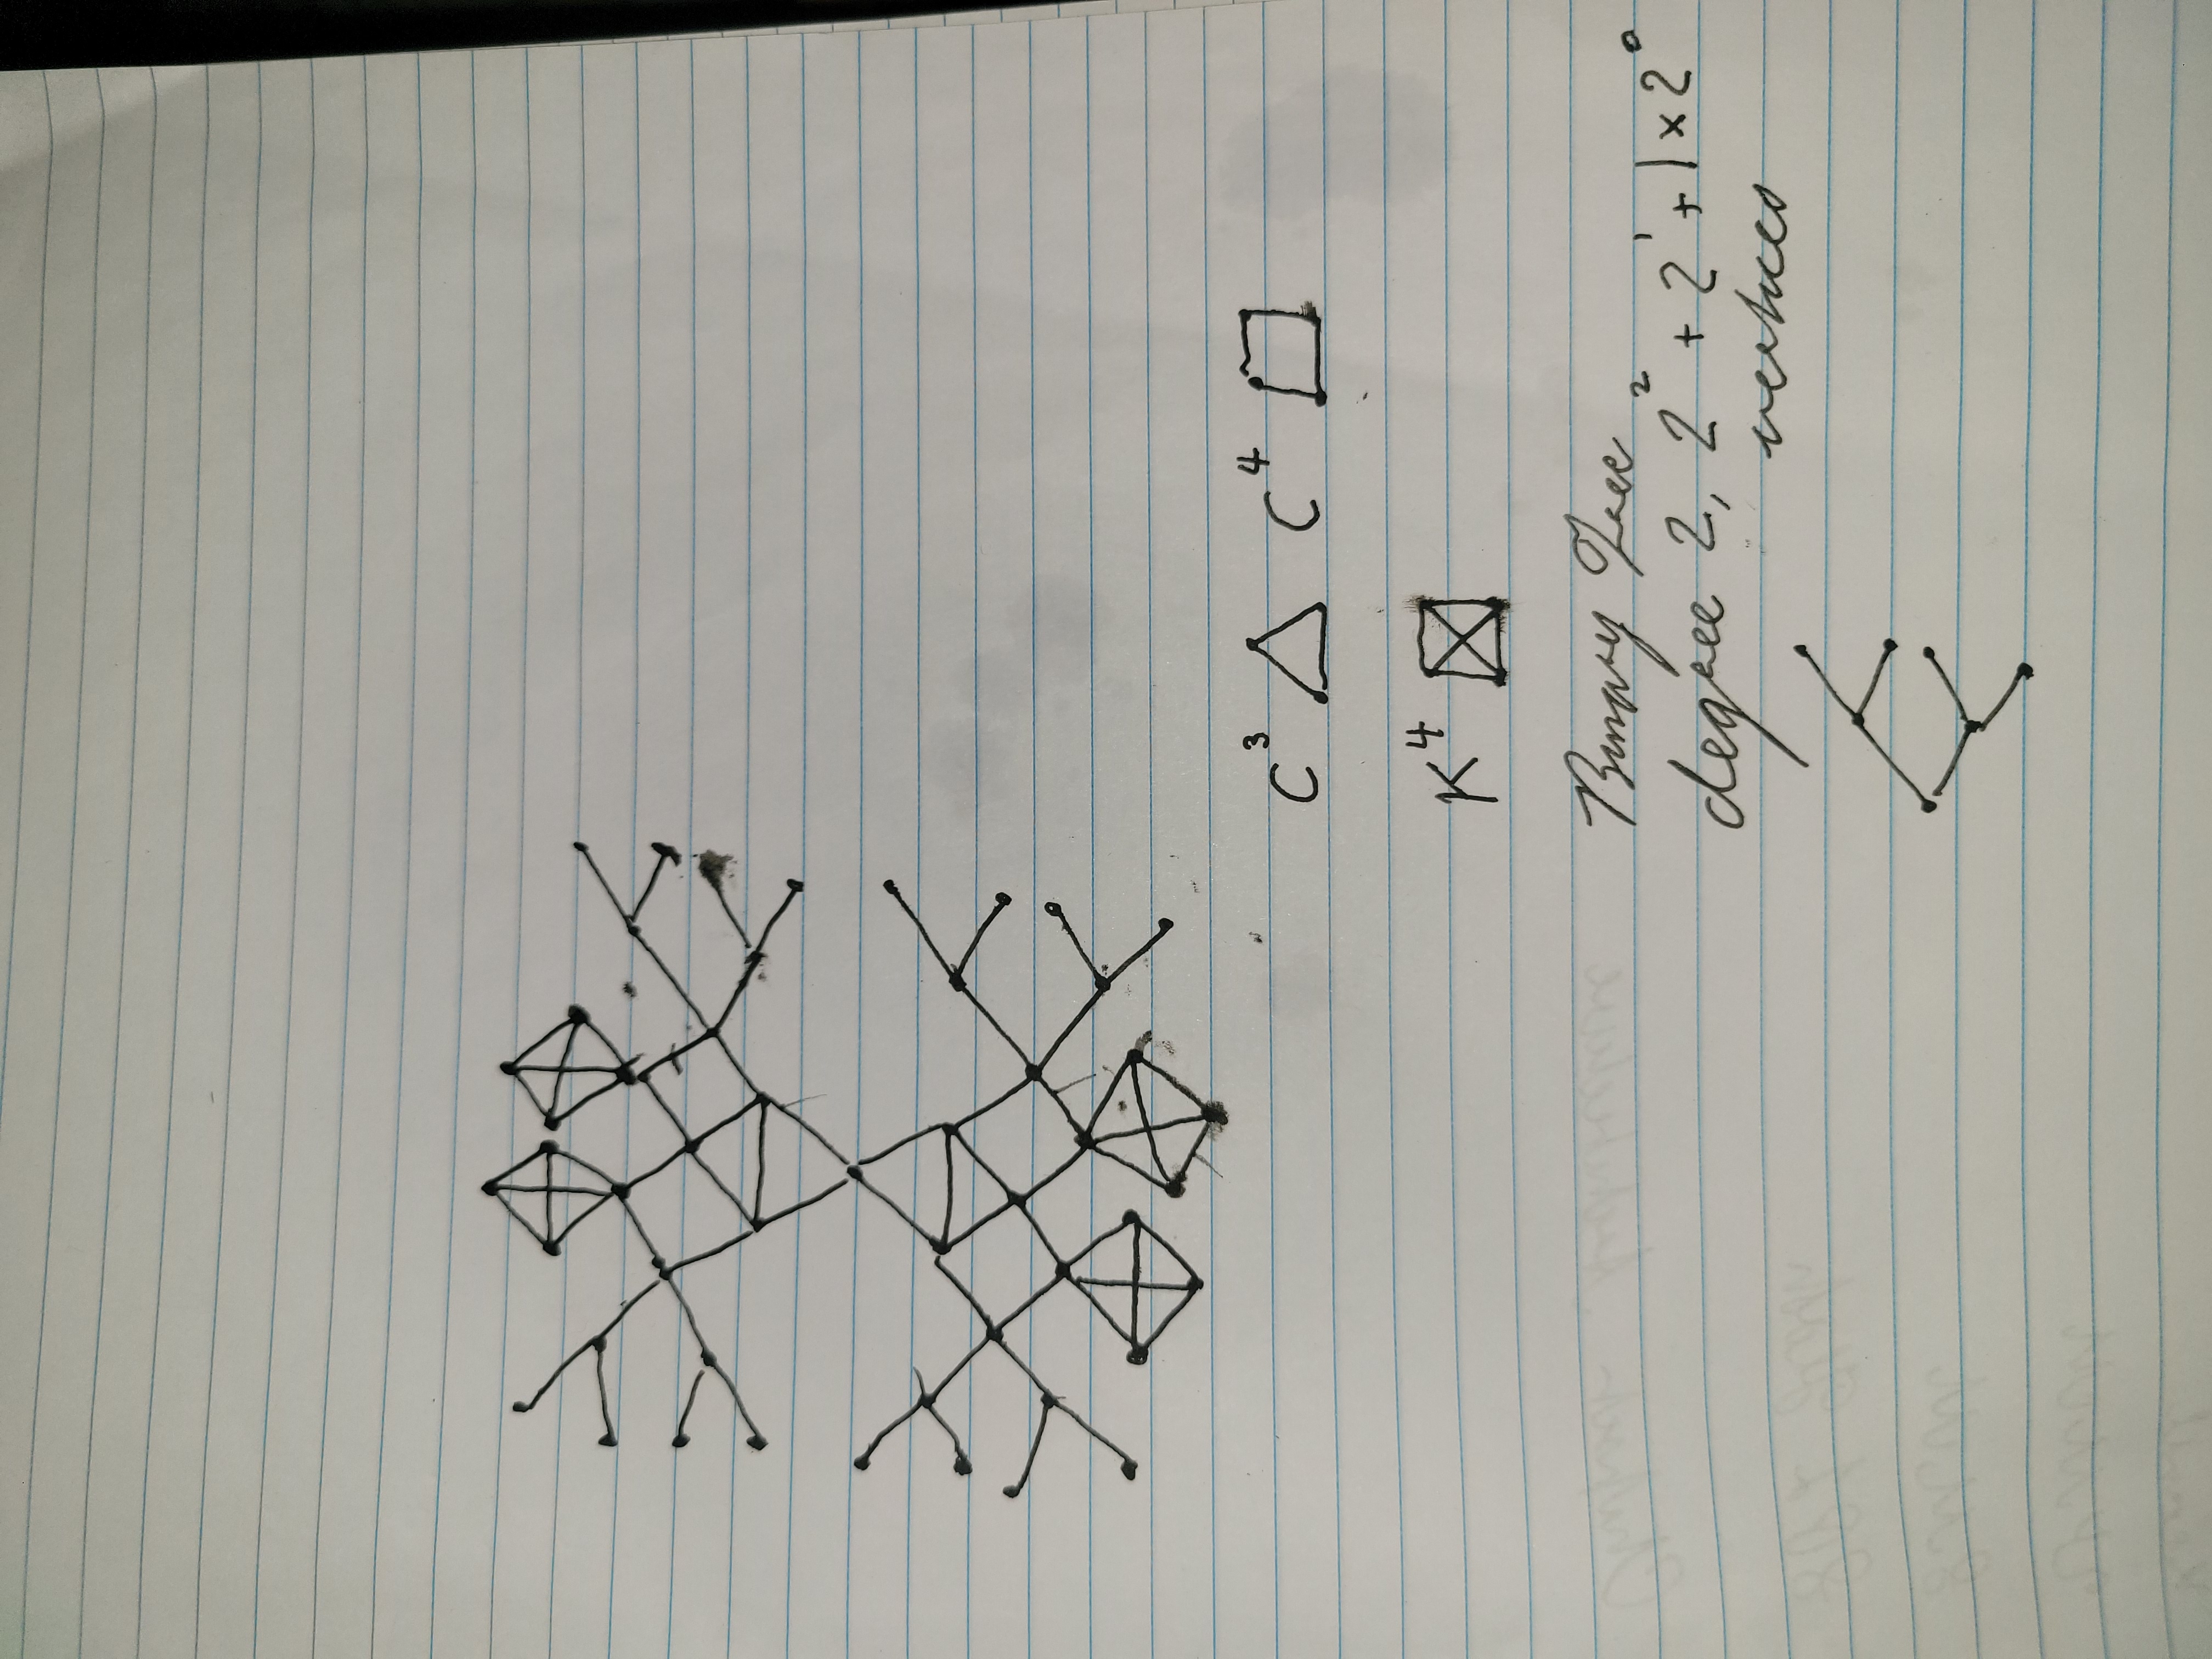 C³ C⁴
K⁴
Binary Tree
degree 2, 2² + 2¹ + 1 x 2⁰
vertices